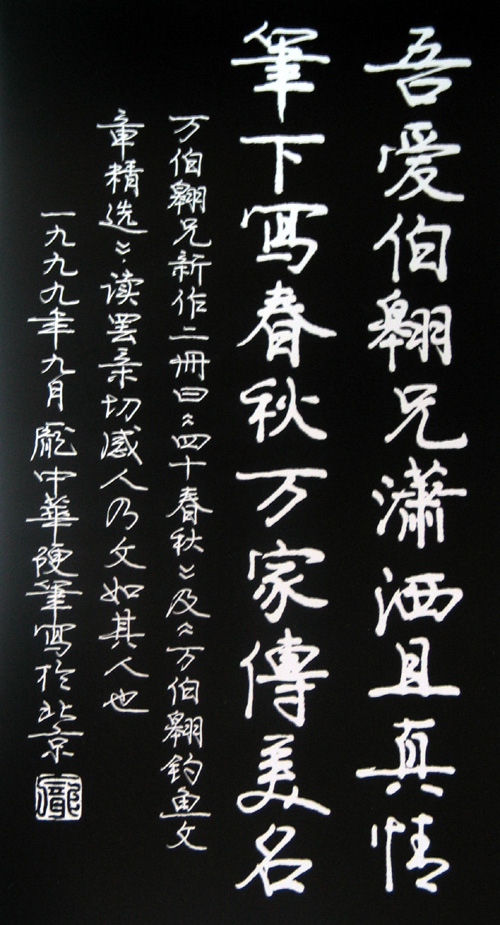 吾爱伯翱兄潇洒且真情
筆下寫春秋万家傳美名
万伯翱兄新作二冊曰《四十春秋》及《万伯翱钓魚文
章精选》读罢亲切感人乃文如其人也
一九九九年九月龐中華硬筆寫於北京
龐